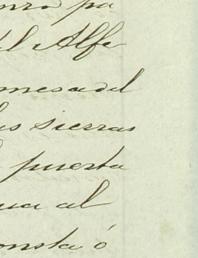 del Alfe
mesa del
las sierras
puerta
ua al
onsta ó